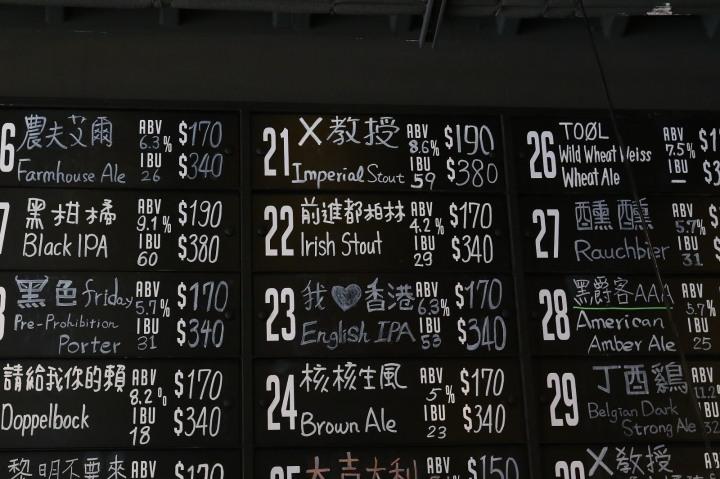 6 農夫艾爾 ABV 6.3% $170
Farmhouse Ale IBU 26 $340
7 黑柑橘 ABV 9.1% $190
Black IPA IBU 60 $380
黑色friday ABV 5.7% $170
Pre-Prohibition Porter IBU 31 $340
請給我你的賴 ABV 8.2% $170
Doppelbock IBU 18 $340
黎明不要來 ABV $170
21 X教授 ABV 8.6% $190
Imperial Stout IBU 59 $380
22 前進都柏林 ABV 4.2% $170
Irish Stout IBU 29 $340
23 我♥香港 ABV 6.3% $170
English IPA IBU 53 $340
24 核核生風 ABV 5% $170
Brown Ale IBU 23 $340
25 大吉大利 ABV $150
26 TOØL ABV 7.5%
Wild Wheat Weiss
Wheat Ale IBU —
27 醺醺 ABV 5.7%
Rauchbier IBU 31
28 黑爵客AAA ABV 5.7%
American
Amber Ale IBU 25
29 丁酉雞 ABV 11.2
Belgian Dark
Strong Ale IBU 32
30 X教授